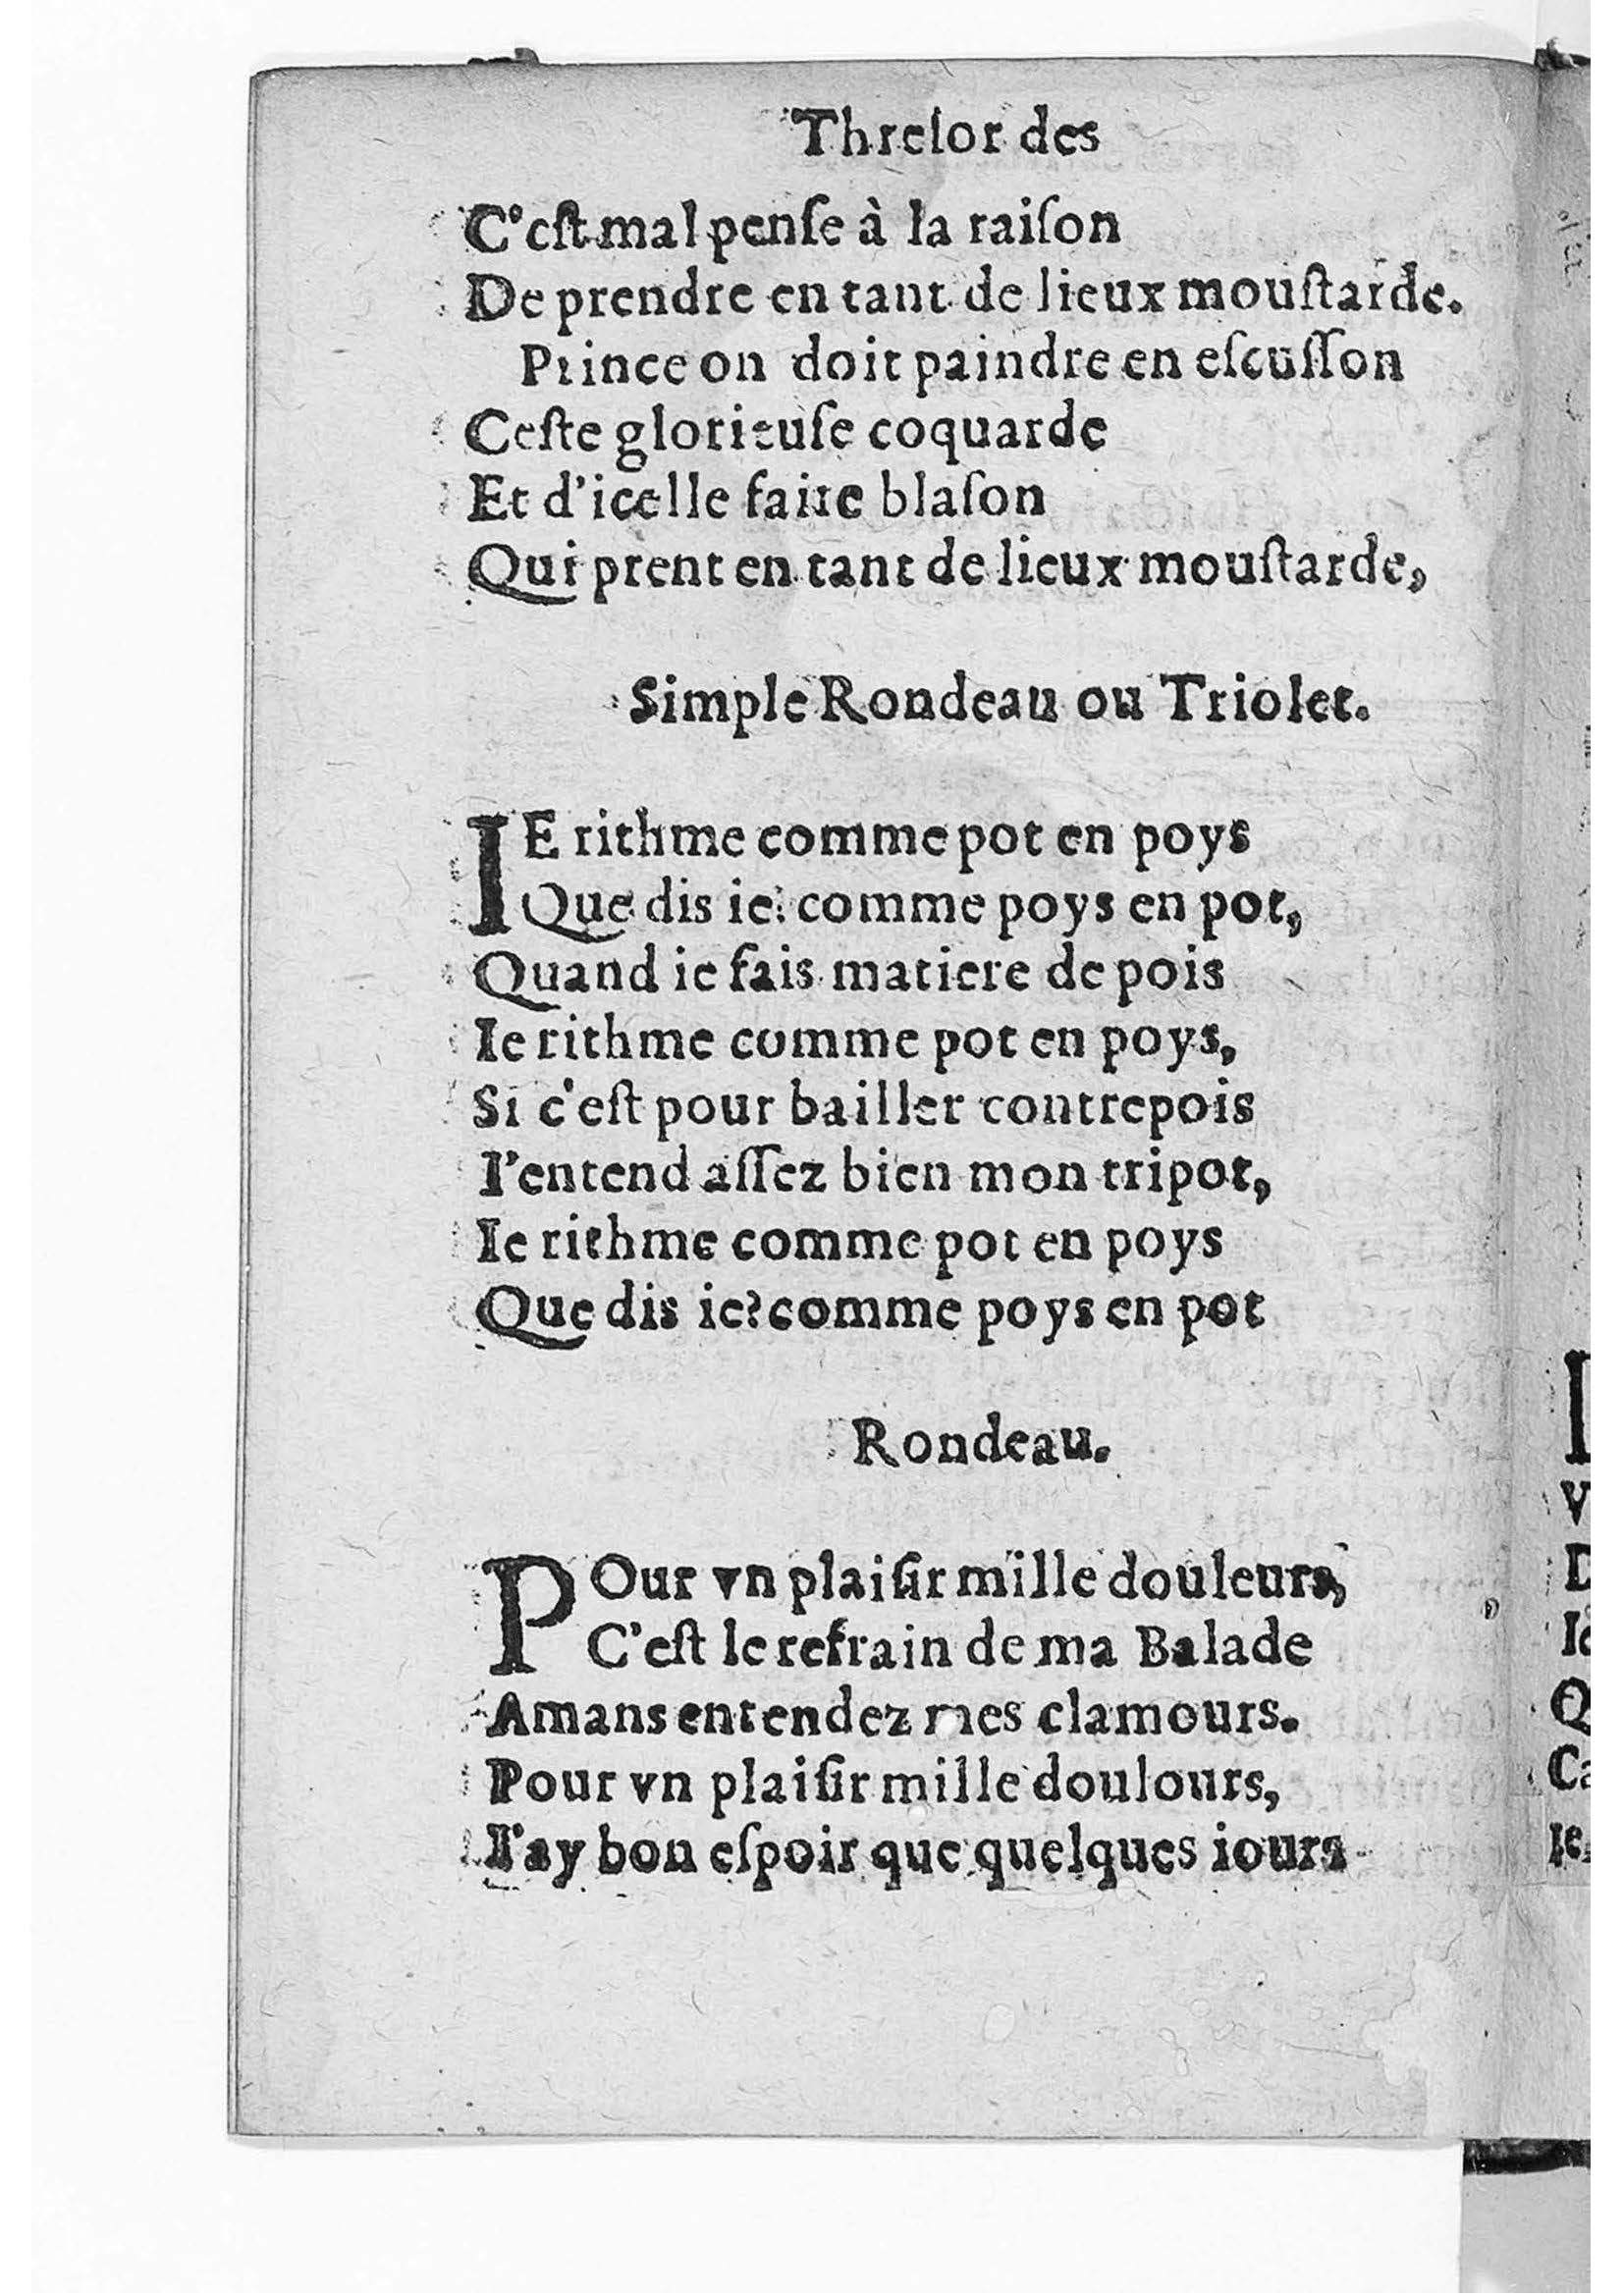 Threſor des
C'eſt mal penſe à la raiſon
De prendre en tant de lieux mouſtarde.
Prince on doit paindre en eſcuſſon
Ceſte glorieuſe coquarde
Et d'icelle faire blaſon
Qui prent en tant de lieux mouſtarde,
Simple Rondeau ou Triolet.
IE rithme comme pot en poys
Que dis ie: comme poys en pot,
Quand ie fais matiere de pois
Ie rithme comme pot en poys,
Si c'eſt pour bailler contrepois
I'entend aſſez bien mon tripot,
Ie rithme comme pot en poys
Que dis ie? comme poys en pot
Rondeau.
POur vn plaiſir mille douleurs,
C'eſt le refrain de ma Balade
Amans entendez mes clamours.
Pour vn plaiſir mille doulours,
I'ay bon eſpoir que quelques iours